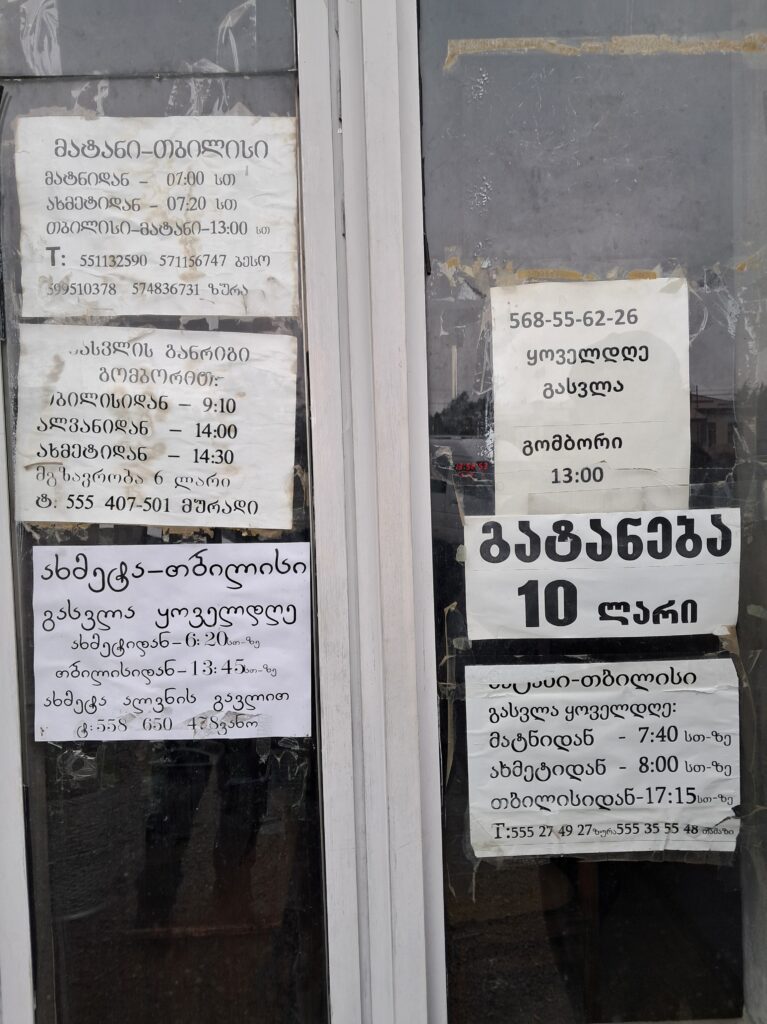 მატანი-თბილისი
მატნიდან - 07:00 სთ
ახმეტიდან - 07:20 სთ
თბილისი-მატანი-13:00 სთ
T: 551132590 571156747 ბესო
599510378 574836731 ზურა
გასვლის განრიგი
გომბორით:
თბილისიდან - 9:10
ალვანიდან - 14:00
ახმეტიდან - 14:30
მგზავრობა 6 ლარი
ტ. 555 407-501 მურადი
ახმეტა-თბილისი
გასვლა ყოველდღე
ახმეტიდან-6:20სთ-ზე
თბილისიდან-13:45სთ-ზე
ახმეტა ალვნის გავლით
ტ:558 650 478ვანო
568-55-62-26
ყოველდღე
გასვლა
გომბორი
13:00
გატანება
10 ლარი
მატანი-თბილისი
გასვლა ყოველდღე:
მატნიდან - 7:40 სთ-ზე
ახმეტიდან - 8:00 სთ-ზე
თბილისიდან-17:15სთ-ზე
T:555 27 49 27ზურა555 35 55 48 თამაზი